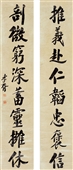 推義赴仁韜忠褒信
剖微窮深蓄靈休